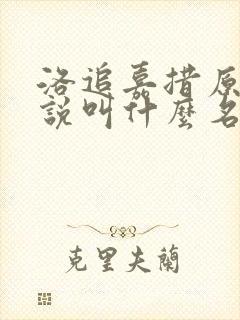 洛追嘉措原
說叫什麼名
克里夫蘭